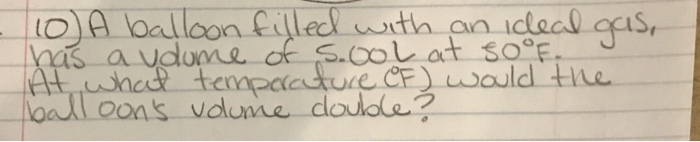 10) A balloon filled with an ideal gas,
has a volume of 5.00L at 50°F.
At what temperature (°F) would the
balloons volume double?